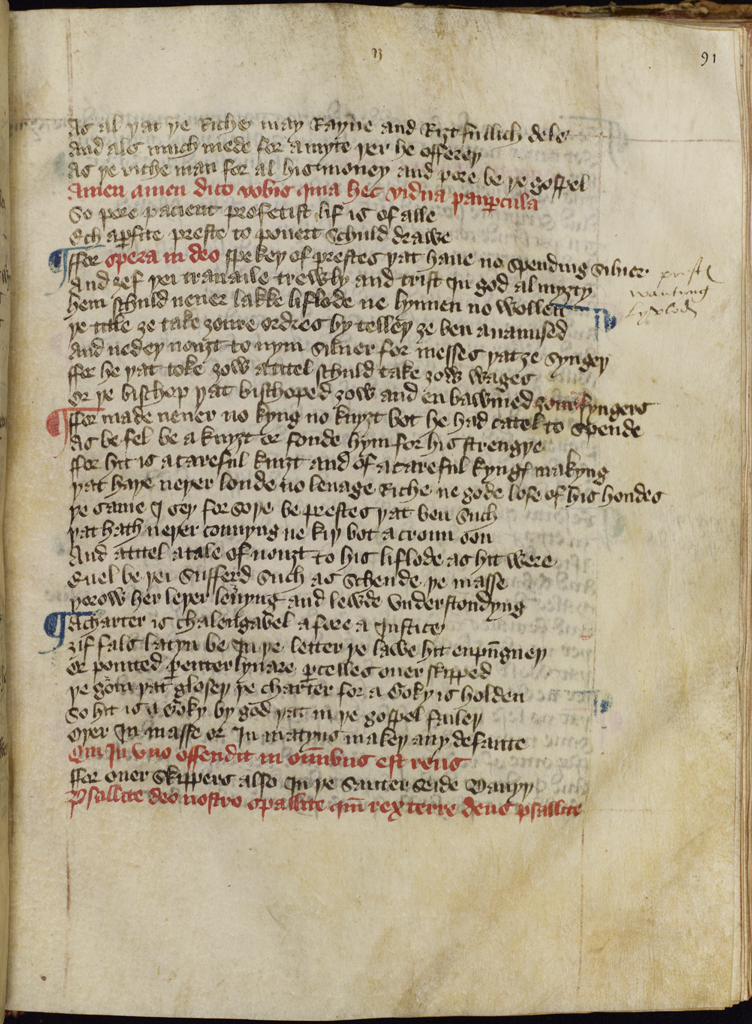 91
As al yat ye Riche may Rayne and Riȝtfullich dele
And als much mede for a myte yer he offerey
As ye riche man for al his money and more be ye gospel
Amen amen dico vobis quia hec vidua paupercula
So pore pacient profetist lif is of alle
Ech apfite preste to pouert schuld drawe
ffor spera in deo spekey of prestes yat haue no spending siluer
And ȝef yei trauaile trewly and trist in god almyȝty
prest
wanting
lyvelod
Hem schuld neuer lakke liflode ne lynnen no wollen
ye title ȝe take ȝoure ordres by telley ȝe ben auaunsed
And nedey nouȝt to nym siluer for messes yat ȝe syngey
ffor he yat toke ȝow a titel schuld take ȝow wages
or ye bisschop yat bisschoped ȝow and en bawmed ȝour fyngers
ffor made neuer no kyng no knyȝt bot he had catel to spende
As be fel be a knyȝt or fonde hym for his strengye
ffor hit is a careful knyȝt and of a careful kyng makyng
yat haye neyer londe no lenage Riche ne gode lose of his hondes
ye same I sey for soye be prestes yat ben such
yat hath neyer connyng ne kiy bot a croun oon
And a titel a tale of nouȝt to his liflode as hit were
Euel be yei sufferd such as schende ye masse
yorow her leyer leuyng and lewde vnderstondyng
A charter is chalengabel afore a Iustice
ȝif fals latyn be In ye letter ye lawe hit enpugney
or peynted penterlynare pcelles ouer skipped
ye gom yat glosey ye charter for a Goky is holden
So hit is a Goky by god yat in ye gospel failey
oyer In masse or In matyns makey any defaute
Qui In vno offendit in omnibus est reus
ffor ouer skippers also In ye sauter seide Dauyy
Psallite deo nostro psallite qm rex terre deus psallite